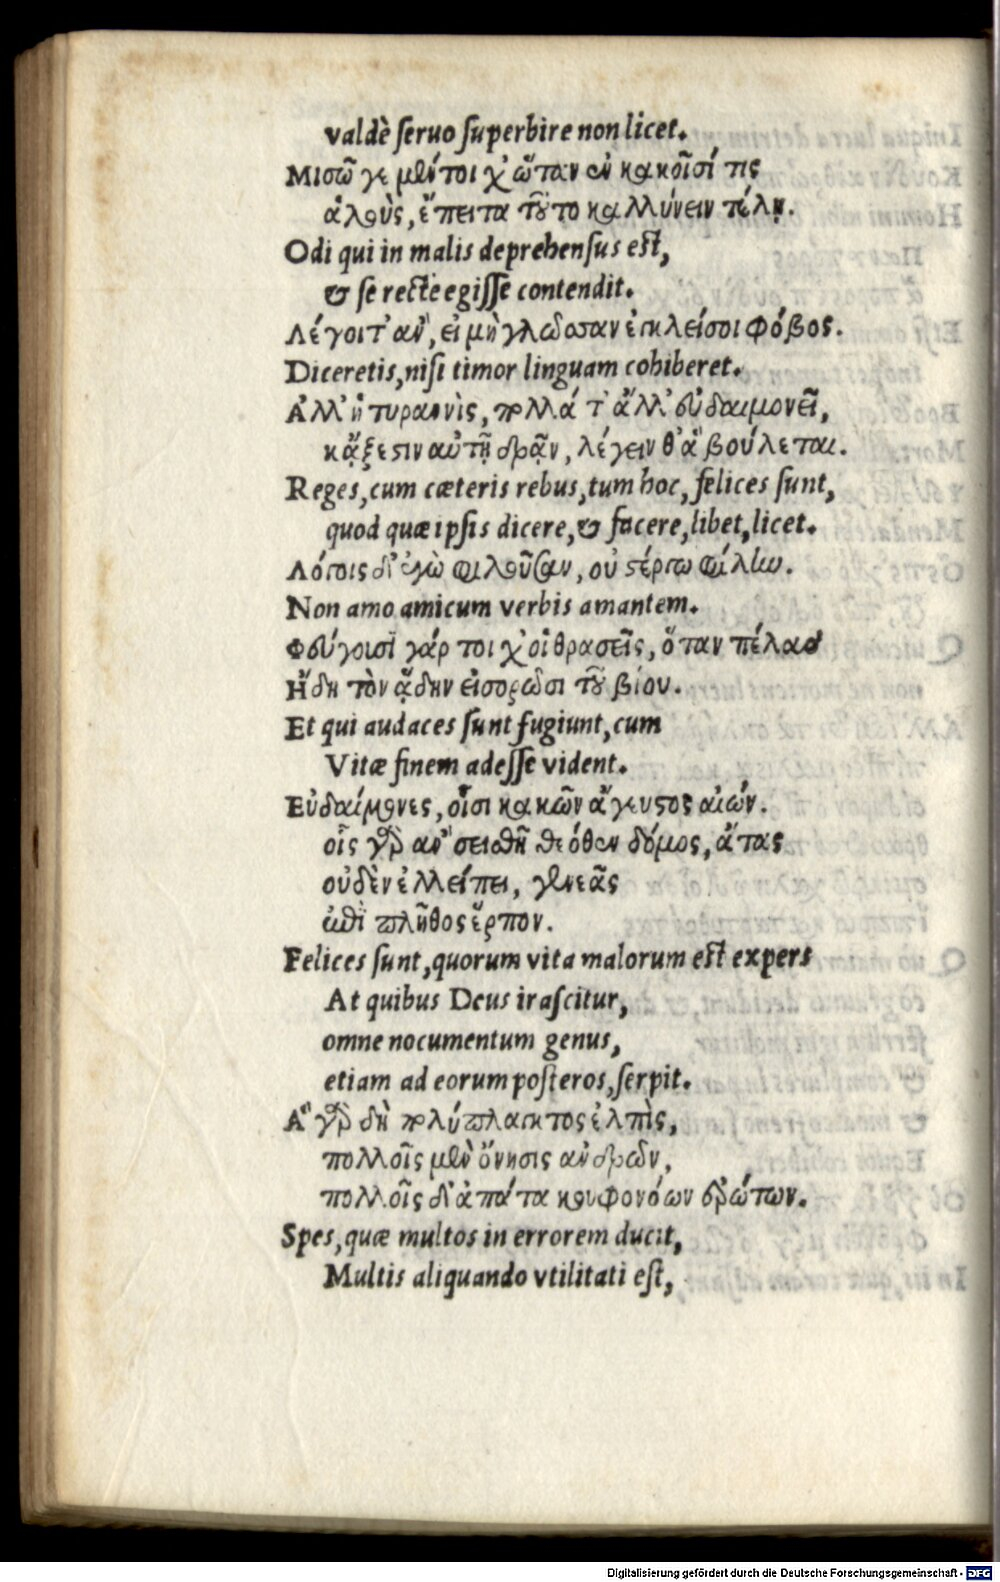 valdè ſeruo ſuperbire non licet.
Μισῶ γε μέντοι χ᾽ὤταν ἐν κακοῖσί τις
ἁλοὺς, ἔπειτα τοῦτο καλλύνειν θέλῃ.
Odi qui in malis deprehenſus eſt,
& ſe recte egiſſe contendit.
Λέγοιτ᾽ ἂν, εἰ μὴ γλῶσσαν ἐγκλείσοι φόβος.
Diceretis, niſi timor linguam cohiberet.
Ἀλλ᾽ ἡ τυραννὶς, πολλά τ᾽ ἄλλ᾽ εὐδαιμονεῖ,
κἄξεστιν αὐτῇ δρᾷν, λέγειν θ᾽ ἃ βούλεται.
Reges, cum cæteris rebus, tum hoc, felices ſunt,
quod quæ ipſis dicere, & facere, libet, licet.
Λόγοις δ᾽ ἐγὼ φιλοῦσαν, οὐ στέργω φίλην.
Non amo amicum verbis amantem.
Φεύγουσι γάρ τοι χ᾽οἱ θρασεῖς, ὅταν πέλας
Ἤδη τὸν ᾅδην εἰσορῶσι τοῦ βίου.
Et qui audaces ſunt fugiunt, cum
Vitæ finem adeſſe vident.
Εὐδαίμονες, οἷσι κακῶν ἄγευστος αἰών.
οἷς γὰρ ἂν σεισθῇ θεόθεν δόμος, ἄτας
οὐδὲν ἐλλείπει, γενεᾶς
ἐπὶ πλῆθος ἕρπον.
Felices ſunt, quorum vita malorum eſt expers
At quibus Deus iraſcitur,
omne nocumentum genus,
etiam ad eorum poſteros, ſerpit.
Ἁ γὰρ δὴ πολύπλαγκτος ἐλπὶς,
πολλοῖς μὲν ὄνησις ἀνδρῶν,
πολλοῖς δ᾽ ἀπάτα κουφονόων ἐρώτων.
Spes, quæ multos in errorem ducit,
Multis aliquando vtilitati eſt,
Digitalisierung gefördert durch die Deutsche Forschungsgemeinschaft - DFG